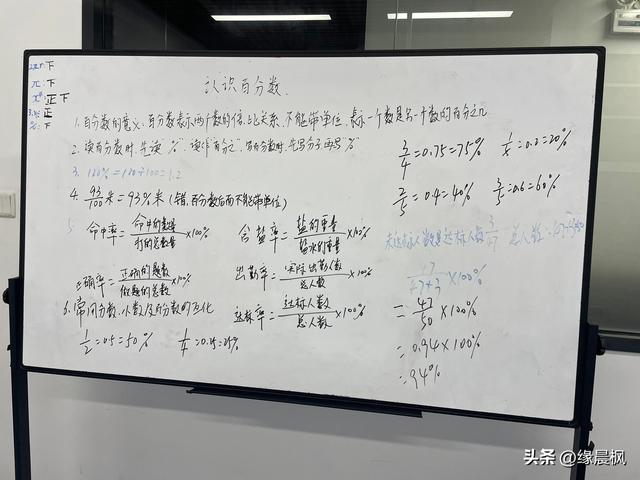 认识百分数.
1.百分数的意义:百分数表示两个数的倍比关系,不能带单位,表示一个数是另一个数的百分之几
2.读百分数时,先读"%",读作"百分之",写百分数时,先写分子再写"%"
3. 120%=120÷100=1.2
4. 93/100米=93%米(错,百分数后面不能带单位)
5. 命中率=命中的数量/打的总数量×100%
含盐率=盐的重量/盐水的重量×100%
正确率=正确的题数/做题的总数×100%
出勤率=实际出勤人数/总人数×100%
达标率=达标人数/总人数×100%
6.常用分数、小数及百分数的互化
1/2=0.5=50%
1/4=0.25=25%
3/4=0.75=75%
1/5=0.2=20%
2/5=0.4=40%
3/5=0.6=60%
未达标人数是达标人数3/47
47/47+3×100%
=47/50×100%
=0.94×100%
=94%
头条 @缘晨枫